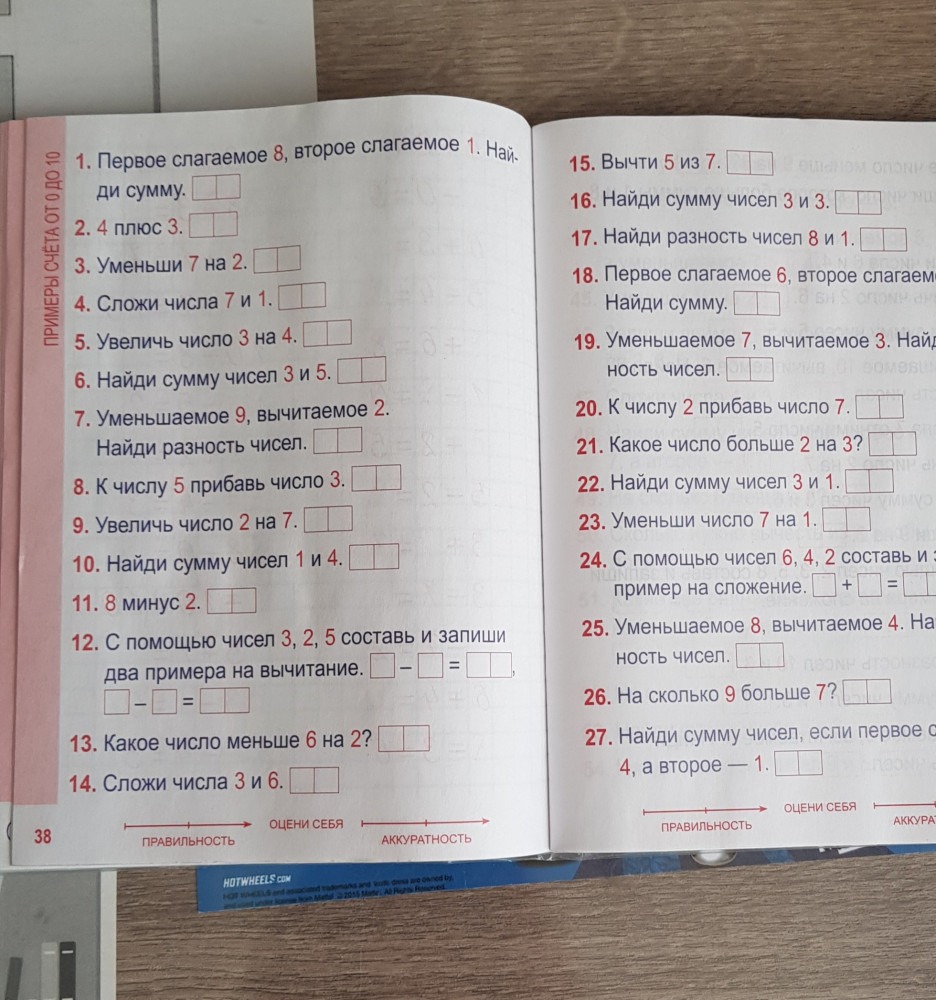 ПРИМЕРЫ СЧЁТА ОТ 0 ДО 10
1. Первое слагаемое 8, второе слагаемое 1. Най-
ди сумму.
2. 4 плюс 3.
3. Уменьши 7 на 2.
4. Сложи числа 7 и 1.
5. Увеличь число 3 на 4.
6. Найди сумму чисел 3 и 5.
7. Уменьшаемое 9, вычитаемое 2.
Найди разность чисел.
8. К числу 5 прибавь число 3.
9. Увеличь число 2 на 7.
10. Найди сумму чисел 1 и 4.
11. 8 минус 2.
12. С помощью чисел 3, 2, 5 составь и запиши
два примера на вычитание. – = ,
– =
13. Какое число меньше 6 на 2?
14. Сложи числа 3 и 6.
ОЦЕНИ СЕБЯ
ПРАВИЛЬНОСТЬ АККУРАТНОСТЬ
38
15. Вычти 5 из 7.
16. Найди сумму чисел 3 и 3.
17. Найди разность чисел 8 и 1.
18. Первое слагаемое 6, второе слагаем
Найди сумму.
19. Уменьшаемое 7, вычитаемое 3. Найд
ность чисел.
20. К числу 2 прибавь число 7.
21. Какое число больше 2 на 3?
22. Найди сумму чисел 3 и 1.
23. Уменьши число 7 на 1.
24. С помощью чисел 6, 4, 2 составь и
пример на сложение. + =
25. Уменьшаемое 8, вычитаемое 4. На
ность чисел.
26. На сколько 9 больше 7?
27. Найди сумму чисел, если первое с
4, а второе — 1.
ОЦЕНИ СЕБЯ
ПРАВИЛЬНОСТЬ АККУРА
HOTWHEELS.COM
HOT WHEELS and associated trademarks and trade dress are owned by,
and used under license from Mattel. Mattel. All Rights Reserved.